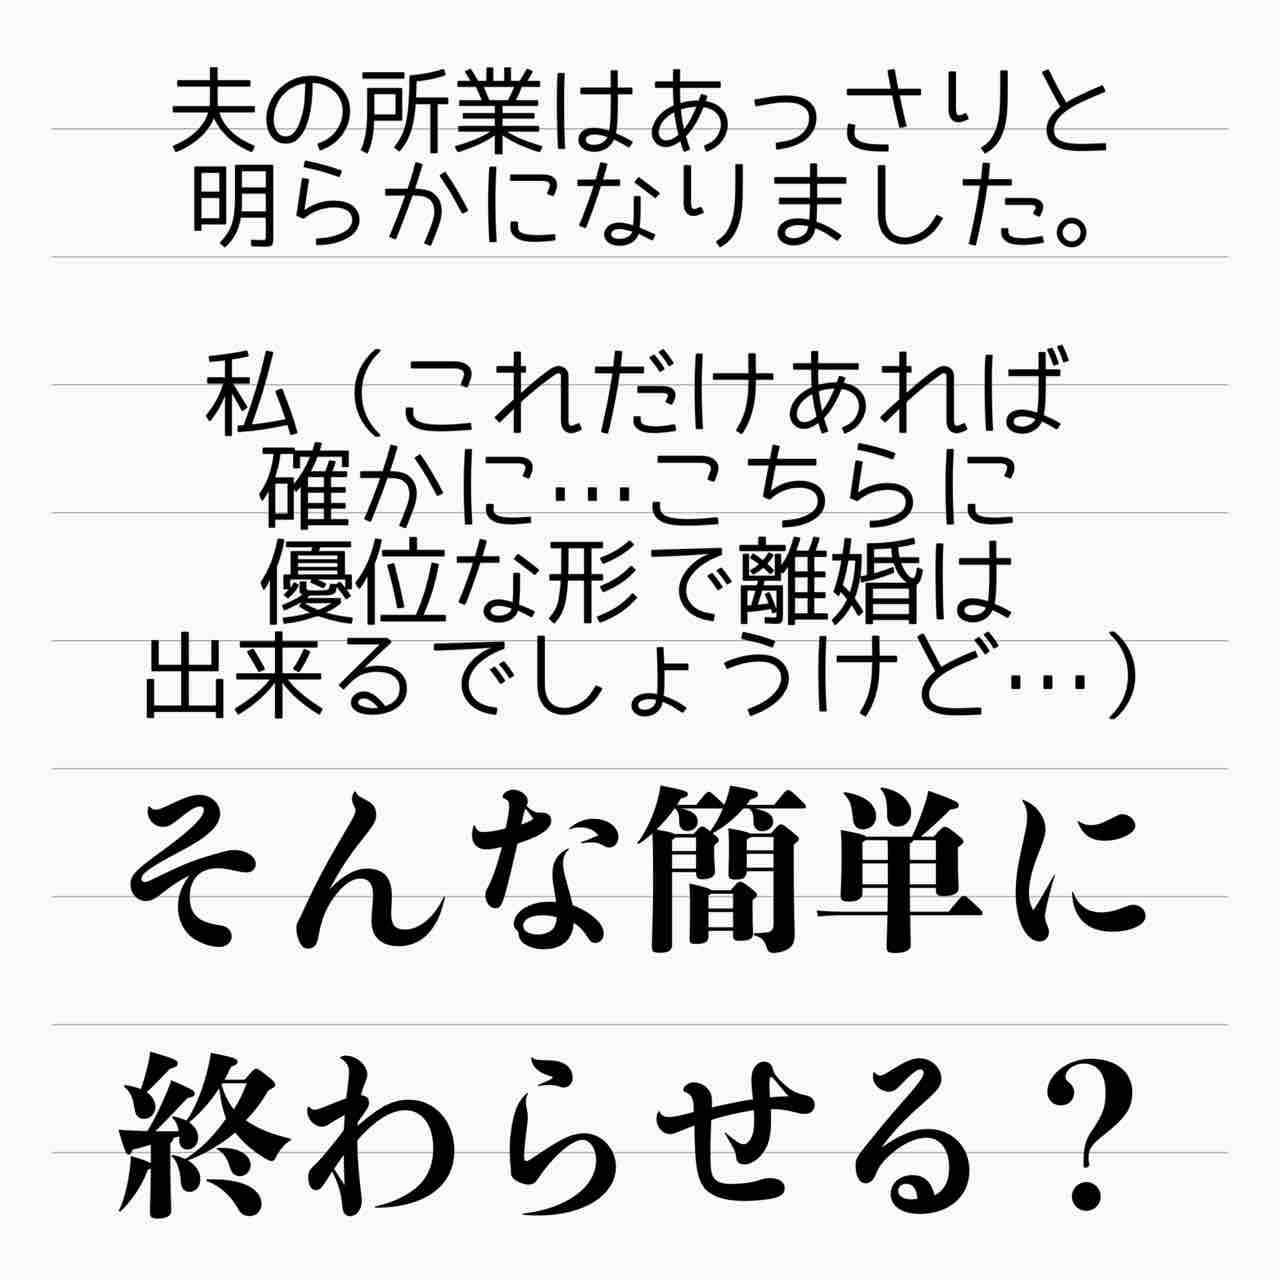 夫の所業はあっさりと
明らかになりました。
私（これだけあれば
確かに…こちらに
優位な形で離婚は
出来るでしょうけど…）
そんな簡単に
終わらせる？